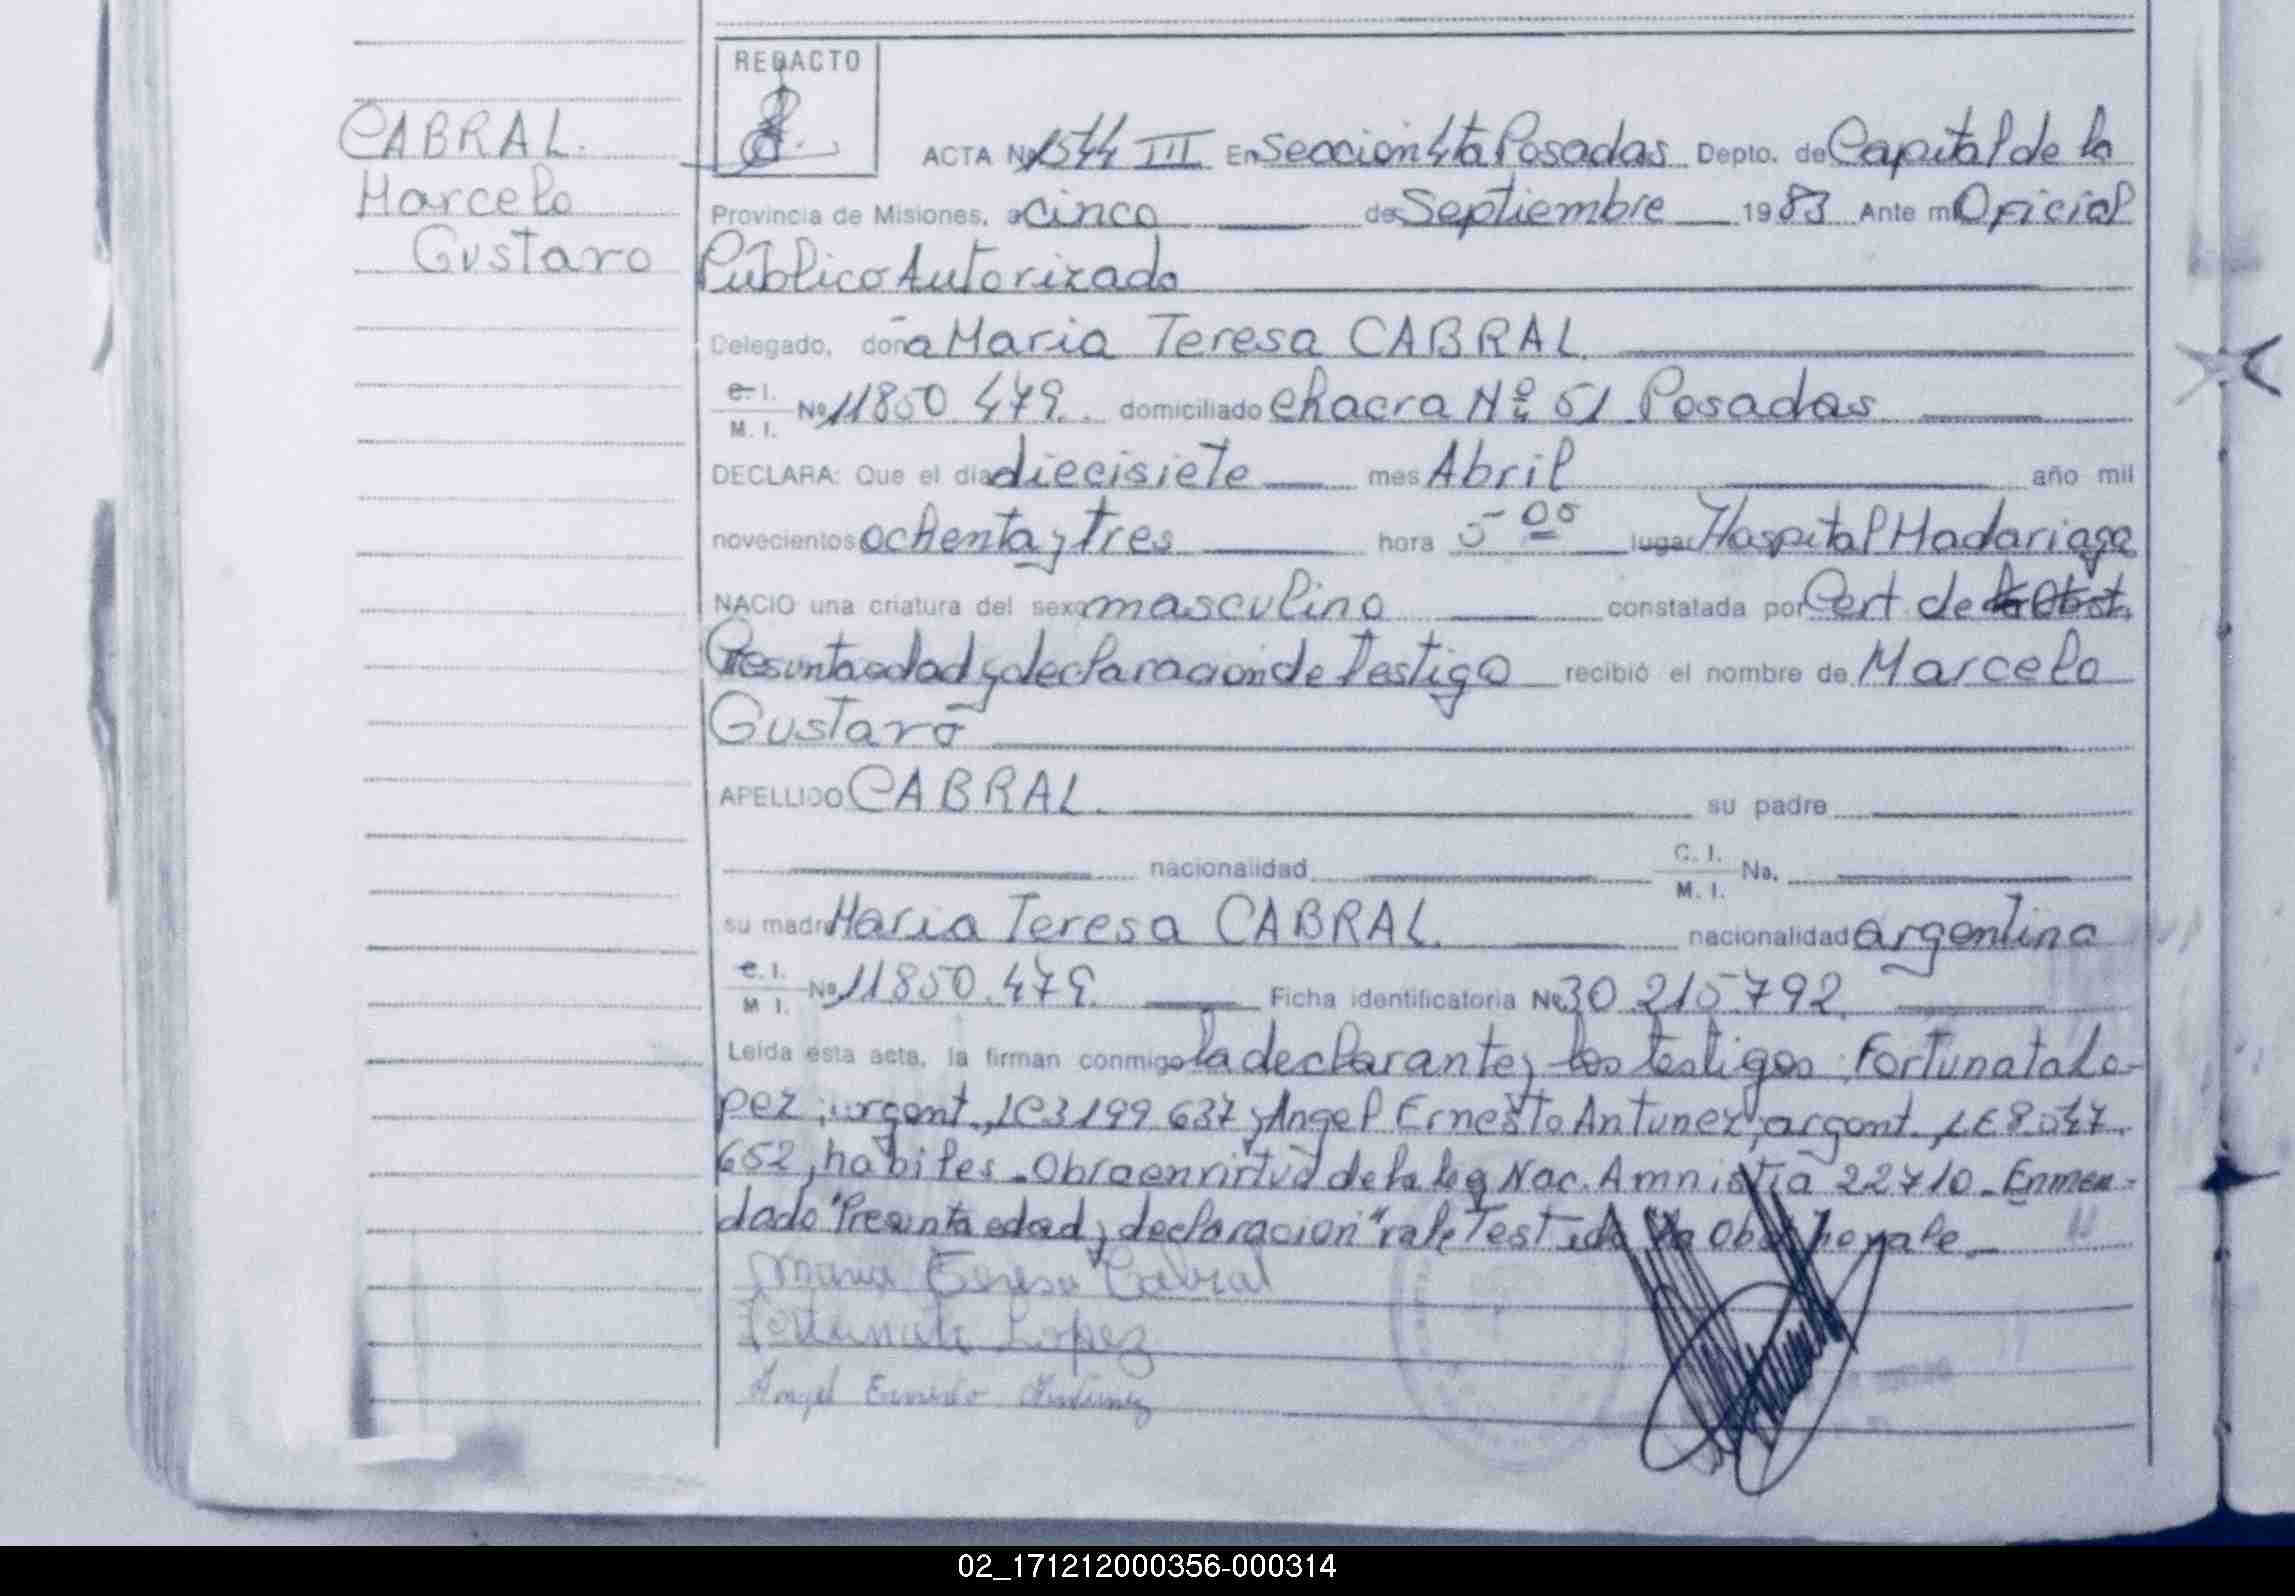 CABRAL.
Marcelo
Gustavo
REDACTO
ACTA No 1544 III En Seccion 4ta Posadas Depto. de Capital de la
Provincia de Misiones, a cinco de Septiembre 1983 Ante mi Oficial
Público Autorizado
Delegado, doña Maria Teresa CABRAL.
C. I. M. I. No 11850.479. domiciliado chacra Nº 51 Posadas
DECLARA: Que el día diecisiete mes Abril año mil
novecientos ochenta y tres hora 5-00 lugar Hospital Madariaga
NACIO una criatura del sexo masculino constatada por Cert. de la Obst.
Presunta edad y declaracion de Testigo recibió el nombre de Marcelo
Gustavo
APELLIDO CABRAL. su padre
nacionalidad C. I. M. I. No.
su madre Maria Teresa CABRAL. nacionalidad argentina
C. I. M. I. No 11850.479. Ficha identificatoria No 30.215.792.
Leída esta acta, la firman conmigo la declarante y los testigos: Fortunata Lo-
pez, argent., LC 3199.637 y Angel Ernesto Antunez, argent., LE 8.547.
652, habiles. Obra en virtud de la ley Nac. Amnistia 22710. Enmen-
dado "Presunta edad y declaracion" vale Testado la Obst no vale
Maria Teresa Cabral
Fortunata Lopez
Angel Ernesto Antunez
02_171212000356-000314